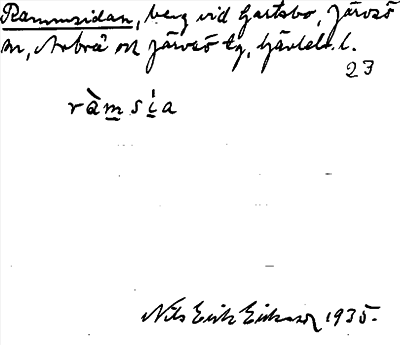 Rammsidan, berg vid Gartsbo, Järvsö
sn, Arbrå och Järvsö tg, Gävleb. l.
23
ràmsia
Nils Erik Eriksson 1935.